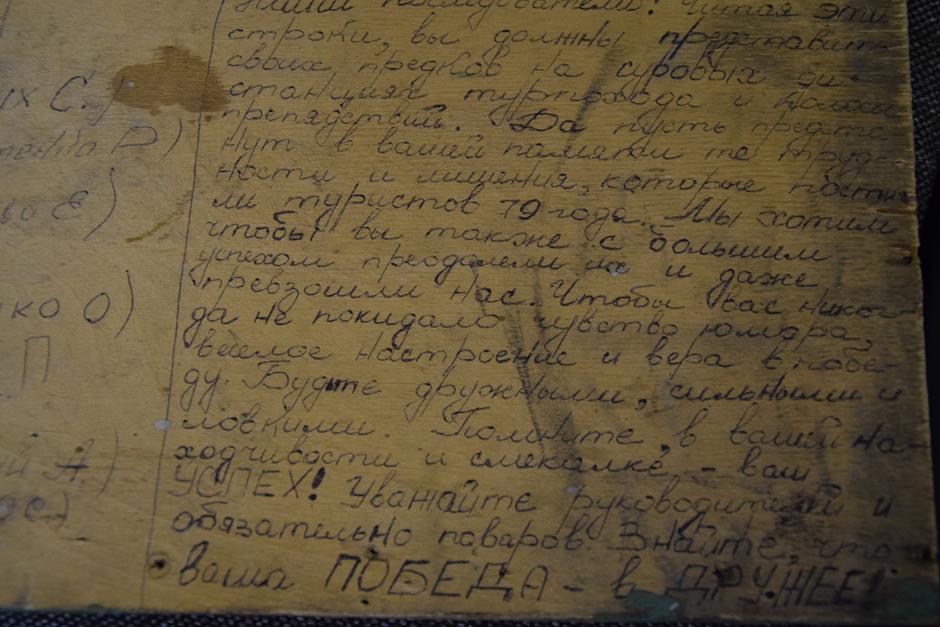 Наши последователи! Читая эти
строки, вы должны представить
своих предков на суровых ди-
ых С.)
станциях турпохода и полосы
препядствий. Да пусть предста
Р)
нут в вашей памяти те труд-
ности и лишения, которые постиг-
Е)
ли туристов 79 года. Мы хотим
чтобы вы также с большим
успехом преодолели их и даже
нко О)
превзошли нас. Чтобы вас никог-
да не покидало чувство юмора,
П
веселое настроение и вера в побе-
ду. Будте дружными, сильными и
ловкими. Помните, в вашей на-
ий А.)
ходчивости и смекалке, - ваш
УСПЕХ! Уважайте руководителей и
с)
обязательно поваров. Знайте, что
ваша ПОБЕДА - в ДРУЖБЕ!